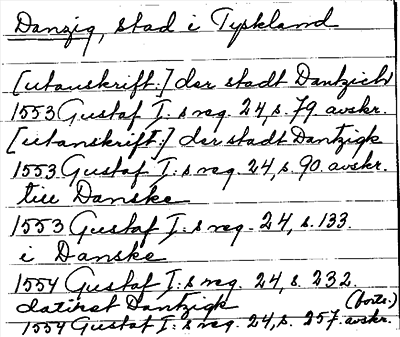 Danzig, stad i Tyskland
[utanskrift:] der stadt Dantzich
1553 Gustaf I:s reg. 24, s. 79. avskr.
[utanskrift:] der stadt Dantzigk
1553 Gustaf I:s reg. 24, s. 90. avskr.
till Danske
1553 Gustaf I:s reg. 24, s. 133.
i Danske
1554 Gustaf I:s reg. 24, s. 232.
daterat Dantzigk
(forts.)
1554 Gustaf I:s reg. 24, s. 257. avskr.